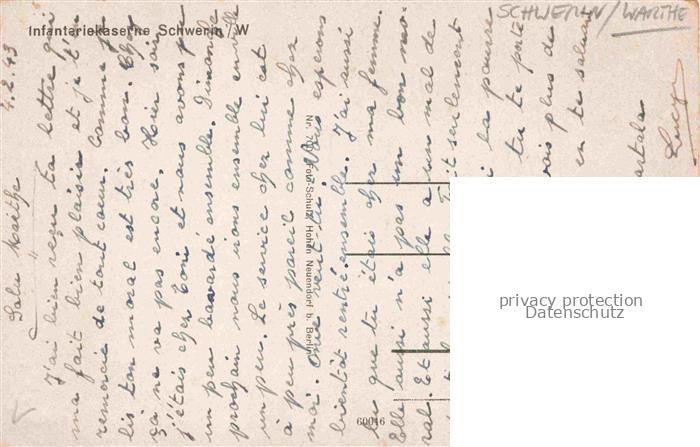 SCHWERIN/WARTHE
Infanteriekaserne Schwerin/W
4.2.43
Salu
J'ai bien reçu ta lettre qui
ma fait bien plaisir et je t'en
remercie de tout coeur. Comme je
lis ton moral est très bon. Cher
ça ne va pas encore. Hier soir
j'étais chez Toni et nous avons pu
un peu bavardé ensemble. Dimanche
prochain nous irons ensemble en ville
un peu. Le service chez lui est
à peu près pareil comme chez
moi. espérons
bientôt rentré ensemble. J'ai aussi
lu que tu étais chez ma femme.
Elle aussi n'a pas un bon mo-
ral. Et aussi elle a un mal de
seulement
la pauvre
tu te porte
plus de
en te saluant
Nr. Foto-Schulz, Hohen Neuendorf b. Berlin
60046
privacy protection
Datenschutz